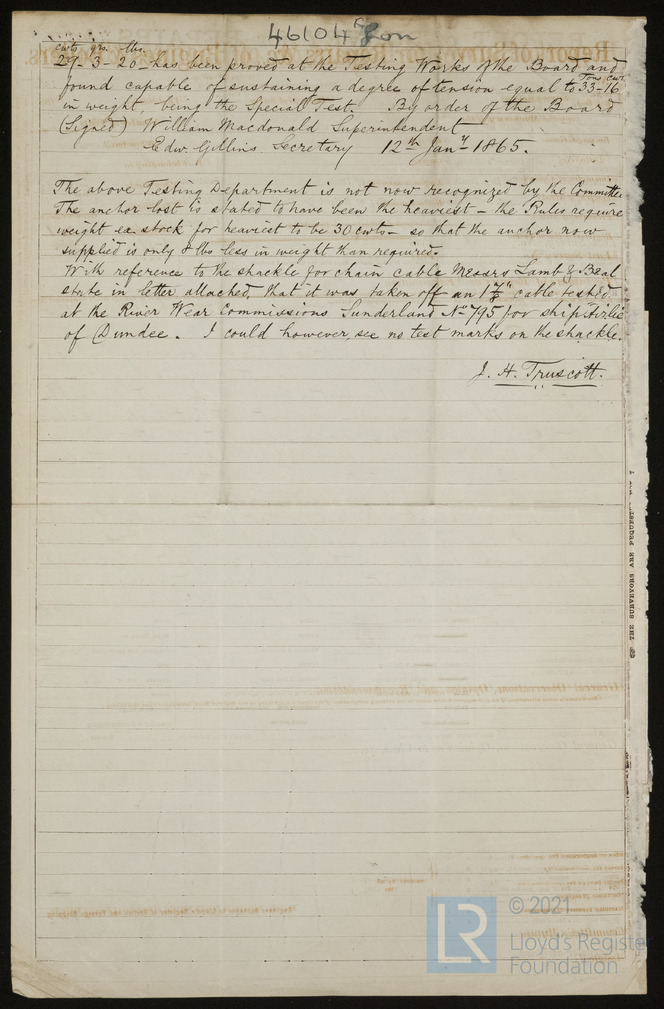 46104 Lon
cwts qrs. lbs.
29 - 3 - 20 - has been proved at the Testing Works of the Board and
found capable of sustaining a degree of tension equal to 33 Tons - 16 cwt.
in weight, being the Special Test. By order of the Board
(Signed) William Macdonald Superintendent
Edw. Gillins Secretary 12th Jany 1865.
The above Testing Department is not now recognized by the Committee
The anchor lost is stated to have been the heaviest - the Rules require
weight ex stock for heaviest to be 30 cwts - so that the anchor now
supplied is only 8 lbs less in weight than required.
With reference to the shackle for chain cable Messrs Lamb & Beal
state in letter attached, that it was taken off an 1 7/8" cable tested
at the River Wear Commissions Sunderland No 795 for ship Airlie
of Dundee. I could however, see no test marks on the shackle.
J. H. Truscott.
THE SURVEYORS ARE REQUESTED
© 2021
LR
Lloyd's Register
Foundation